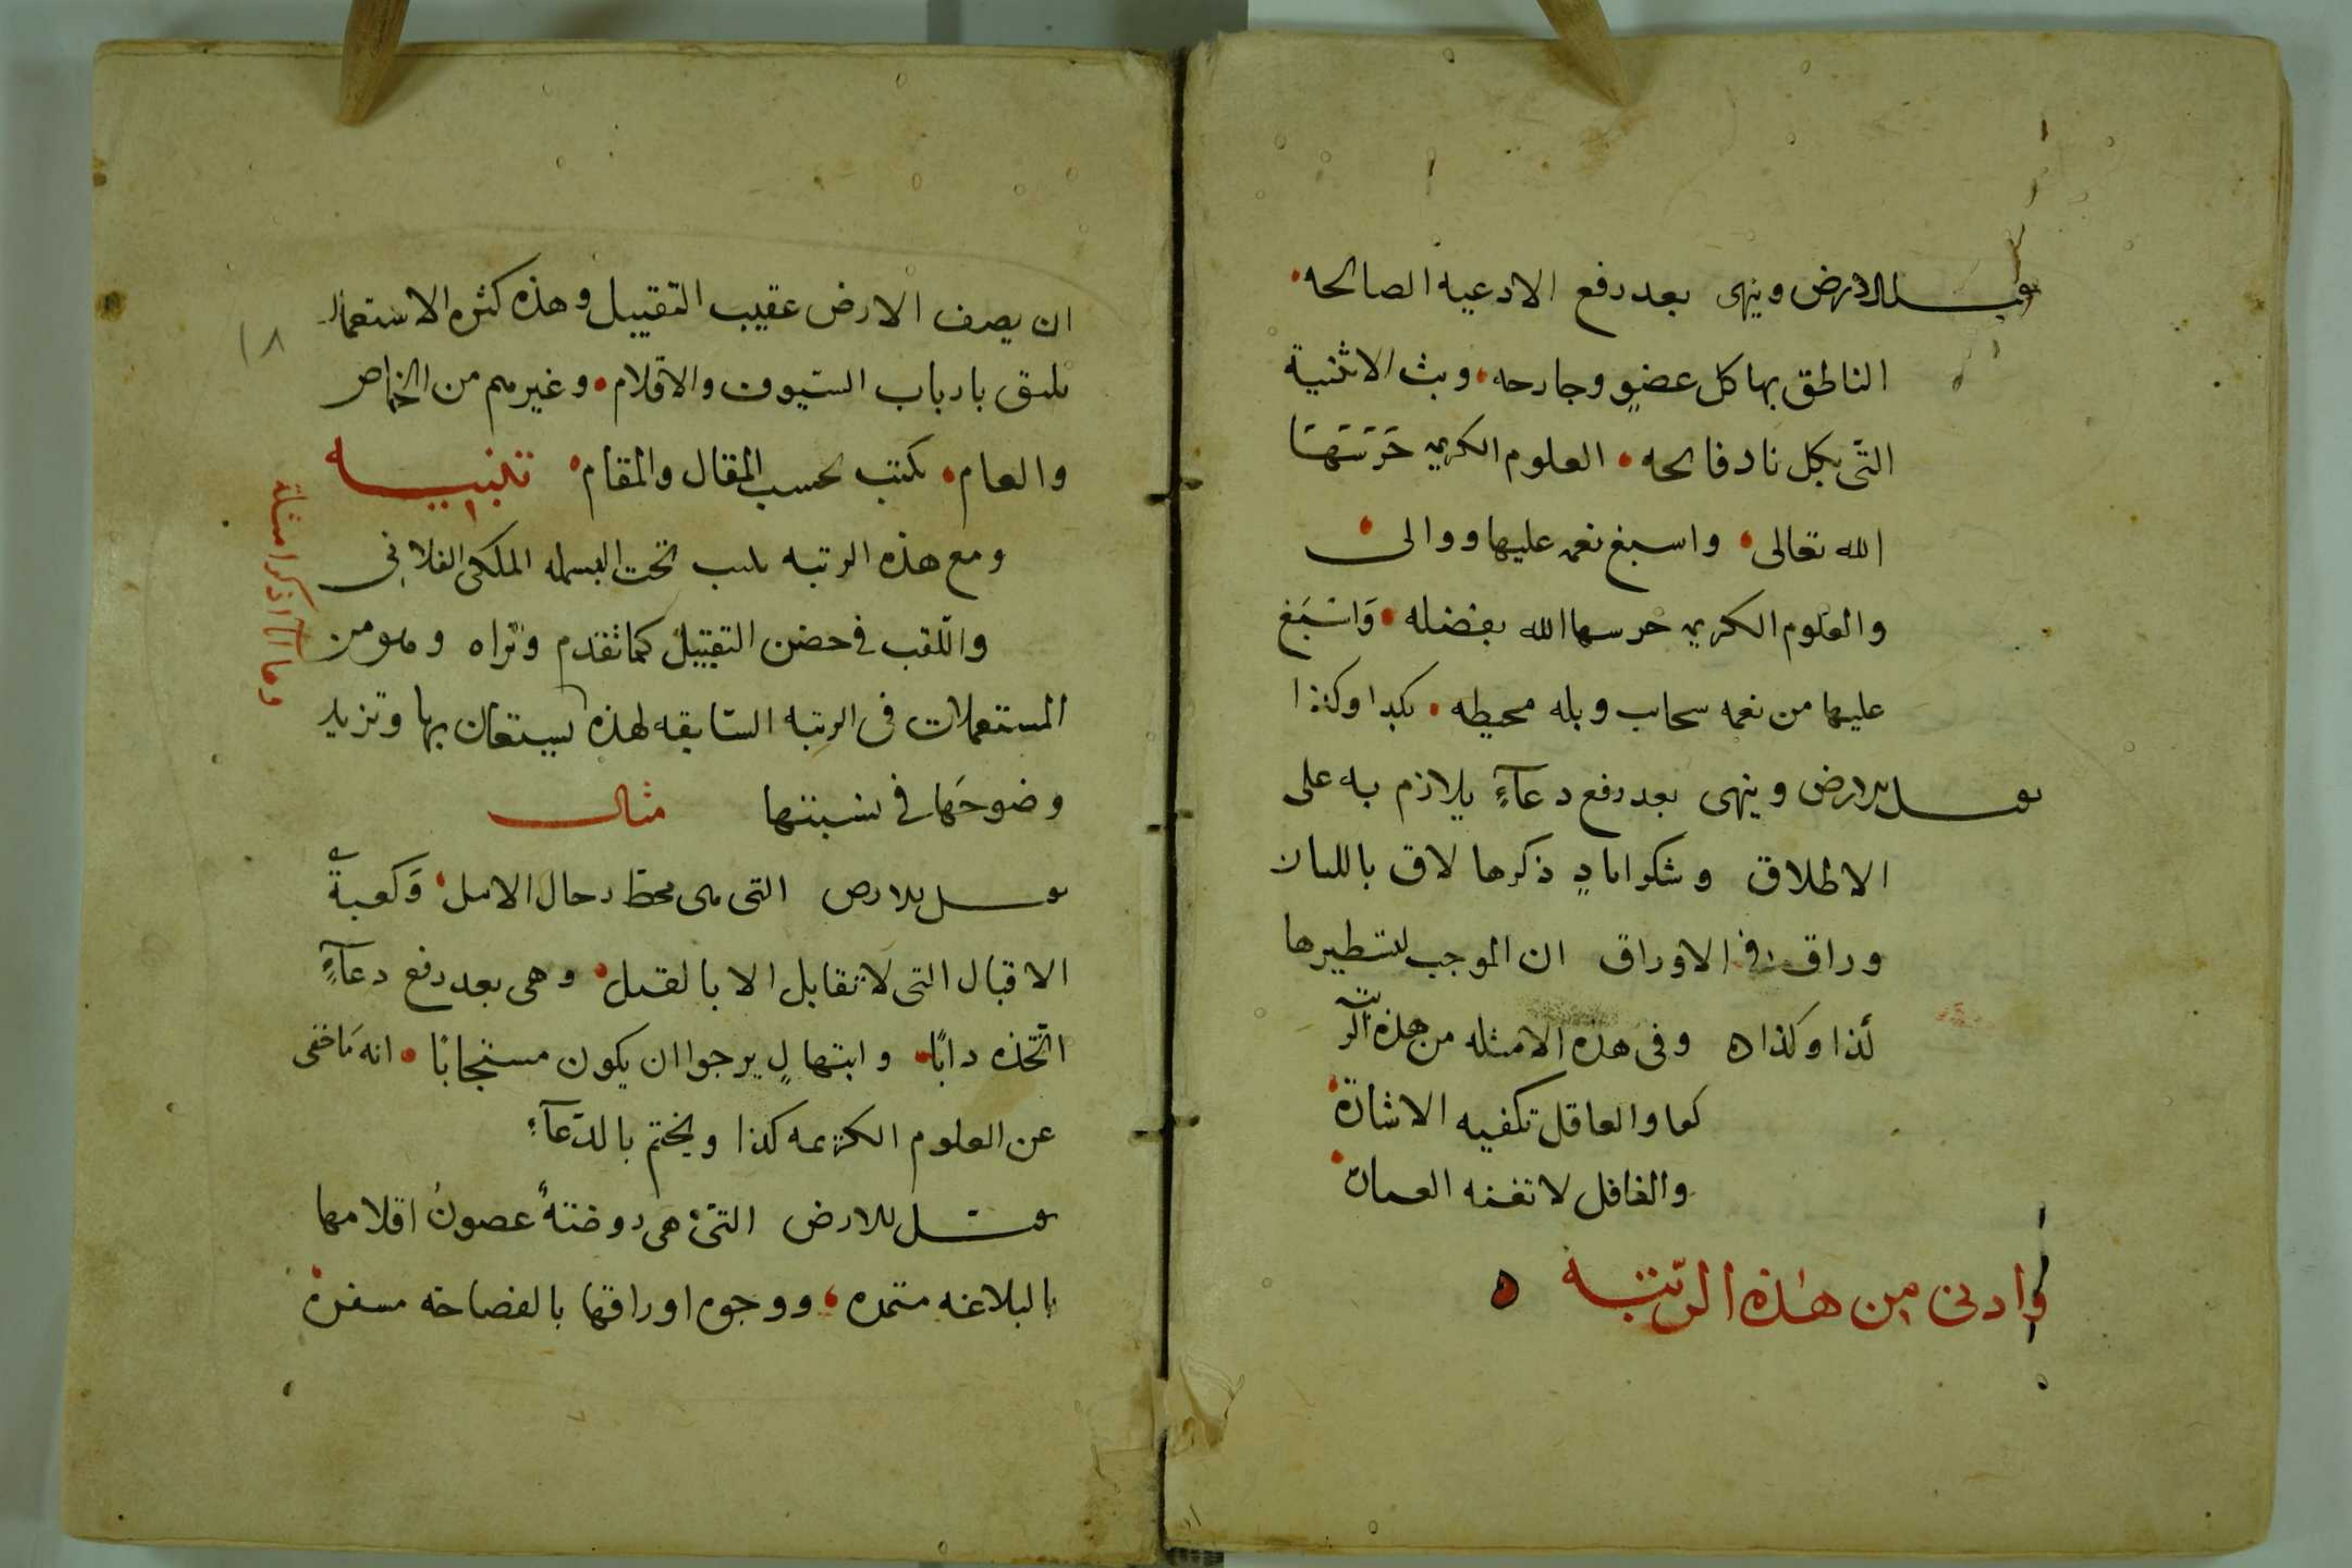 يقبل الارض وينهى بعد رفع الادعيه الصالحه
الناطق بها كل عضو وجارحه وبث الاثنية
التى بكل ناد فائحه العلوم الكريمه حرسها
الله تعالى واسبغ نعمه عليها ووالى
والعلوم الكريمه حرسها الله بفضله واسبغ
عليها من نعمه سحاب وبله محيطه بكذا وكذا
يقبل الارض وينهى بعد رفع دعآءٍ يلازم به على
الاطلاق وشكر اياد ذكرها لاق باللسان
وراق فى الاوراق ان الموجب لتسطيرها
كذا وكذا ه وفى هذه الامثله من هذه الرتبة
والعاقل تكفيه الاشارة
والغافل لا تفيده العبارة
وادنى من هذه الرّتبة
ان يصف الارض عقيب التقبيل وهذه كثره الاستعمال
تليق بارباب السّيوف والاقلام وغيرهم من الخاص
والعام تكتب بحسب المقال والمقام تنبيه
ومع هذه الرتبه يكتب تحت البسمله الملكى الفلانى
واللّقب فى حضن التقبيل كما تقدم وتراه وهو من
المستعملات فى الرتبه السّابقه لهذه ليستعان بها وتزيد
وضوحَها فى نسبتها مثال
يقبل الارض التى هى محطّ رحال الامل وكعبةً
الاقبال التى لا تقابل الا بالقبل وهى بعد رفع دعآءٍ
اتّخذه دابًا وابتهالٍ يرجوا ان يكون مستجابًا انه مَا خفى
عن العلوم الكريمه كذا ويختم بالدّعآءِ
يقبل الارض التى هى روضةً غصونُ اقلامها
بالبلاغه مثمره ووجوه اوراقها بالفصاحه مسفرة
وها انا اذكر امثلة
١٨